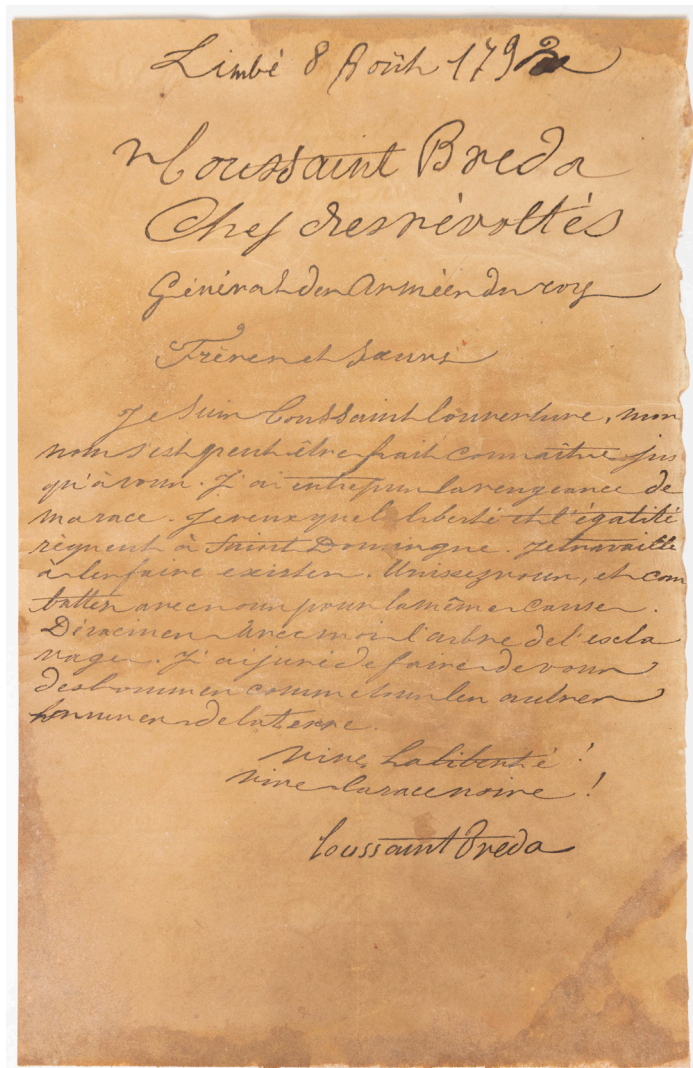 Limbé 8 Août 1792
Toussaint Breda
Chef des révoltés
Général des Armées du roy
Frères et Sœurs
Je suis Toussaint louverture, mon
nom s'est peut être fait connaître jus
qu'à vous. J'ai entrepris la vengeance de
ma race. Je veux que la liberté et l'égalité
règnent à Saint Domingue. Je travaille
à les faire exister. Unissez vous, et com
battez avec nous pour la même cause.
Déracinez avec moi l'arbre de l'escla
vage. J'ai juré de faire de vous
des hommes comme tous les autres
hommes de la terre.
Vive La liberté !
Vive la race noire !
Toussaint Breda